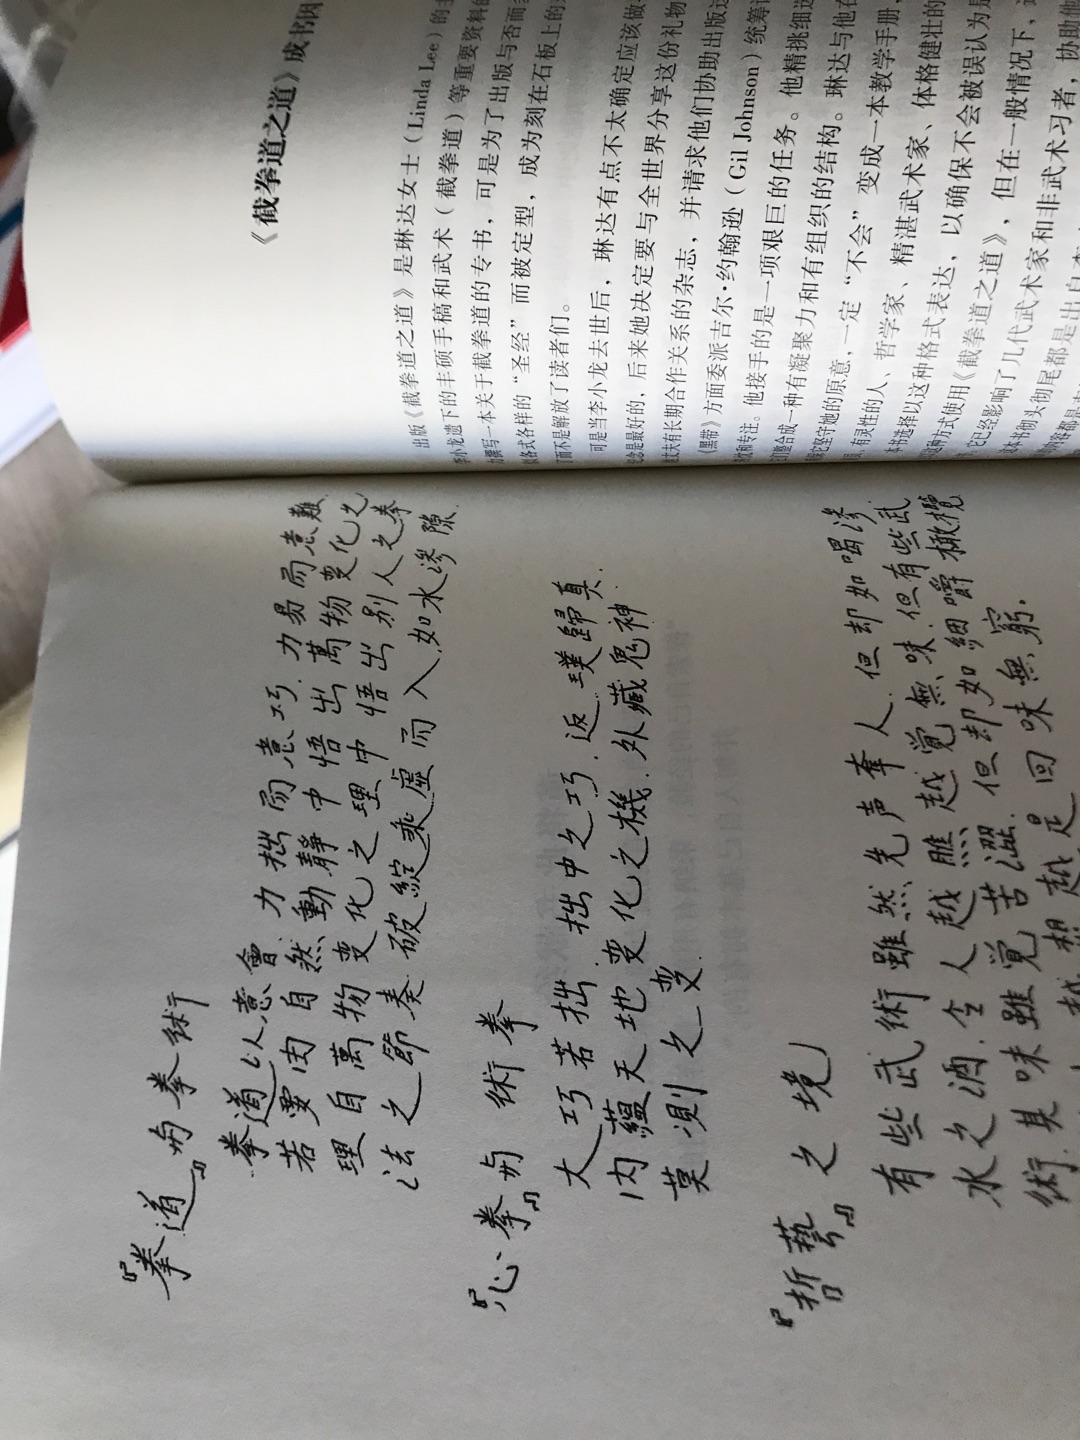 『拳道』与拳術
拳道以意會. 力拙而意巧. 力易而意難.
若要由自然動靜中悟出萬物变化之
理自萬物变化之理中悟出别人之拳
法之節奏破綻乘虚而入.如水滲隙.
『心拳』与術拳
大巧若拙. 拙中之巧. 返璞歸真.
内蘊天地变化之機. 外藏鬼神
莫測之变.
『哲藝』之境
有些武術雖然先声奪人. 但却如喝滲
水之酒. 令人越瞧越覺無味. 但有些武
術. 其味雖覺苦澀. 但却如細嚼橄欖
越想越是回味無窮.
《截拳道之道》成书因
出版《截拳道之道》是琳达女士（Linda Lee）的
李小龙遗下的丰硕手稿和武术（截拳道）等重要资料的
力撰写一本关于截拳道的专书，可是为了出版与否而
各式各样的“圣经”而被定型，成为刻在石板上的
而不是解放了读者们。
可是当李小龙去世后，琳达有点不太确定应该做
是最好的，后来她决定要与全世界分享这份礼物
夫有长期合作关系的杂志，并请求他们协助出版
《黑带》方面委派吉尔·约翰逊（Gil Johnson）统筹
和专注。他接手的是一项艰巨的任务。他精挑细选
整合成一种有凝聚力和有组织的结构。琳达与他在
它坚守她的原意，一定“不会”变成一本教学手册，
有灵性的人、哲学家、精湛武术家、体格健壮的
本书选择以这种格式表达，以确保不会被误认为是
种方式使用《截拳道之道》，但在一般情况下，
已经影响了几代武术家和非武术习者，协助他
本书彻头彻尾都是出自李